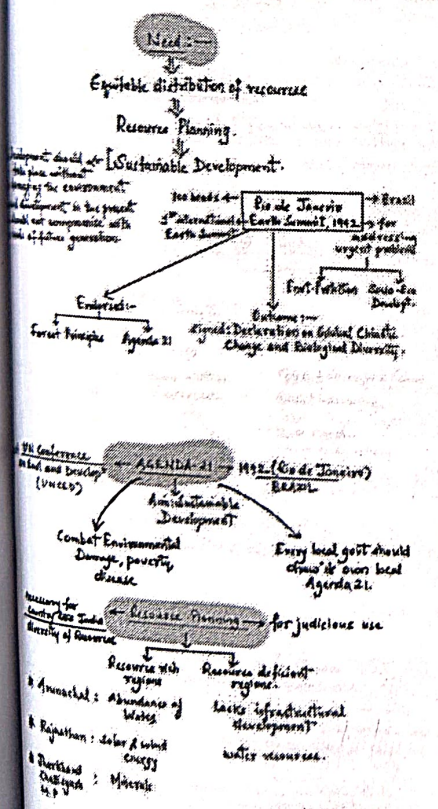 Need :-
Equitable distribution of resources
Resource Planning.
[Sustainable Development.
development should
take place without
damaging the environment
and development in the present
should not compromise with
needs of future generations.
100 heads
Rio de Janeiro
Earth Summit, 1992
Brazil
1st international
Earth Summit
for
addressing
urgent problems
Envt. Protection
Socio-Eco
Develop.
Endorsed:-
Forest Principles
Agenda 21
Outcome :-
signed: Declaration on Global Climatic
Change and Biological Diversity.
UN Conference
on Envt and Develop
(UNCED)
AGENDA-21
1992 (Rio de Janeiro)
BRAZIL
Aim: Sustainable
Development
Combat Environmental
Damage, poverty,
disease
Every local govt should
draw its own local
Agenda 21.
necessary for
country like India
diversity of Resources
Resource Planning
for judicious use
Resource rich
regions
Resource deficient
regions.
Arunachal : Abundance of
Water
Lacks infrastructural
development
Rajasthan : Solar & wind
energy
water resources.
Jharkhand
Chattisgarh
M.P : Minerals